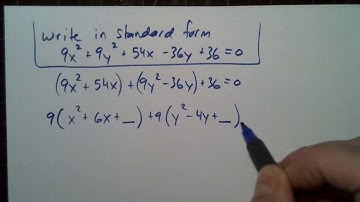 Write in standard form
9x² + 9y² + 54x - 36y + 36 = 0
(9x² + 54x) + (9y² - 36y) + 36 = 0
9(x² + 6x + _) + 9(y² - 4y + _)